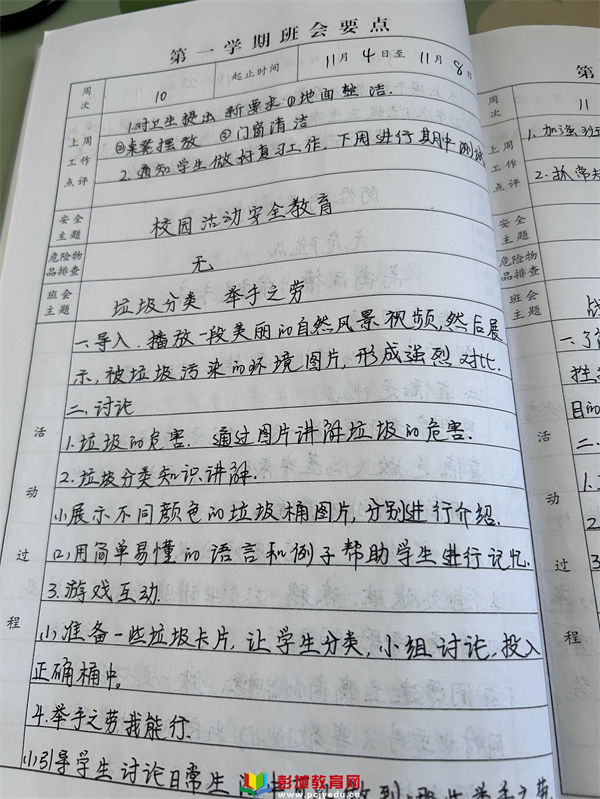 第一学期班会要点
周次 10 起止时间 11月4日至11月8日
上周工作点评
1.对卫生提出新要求①地面整洁.
②桌凳摆放 ③门窗清洁
2.通知学生做好复习工作,下周进行期中测试
安全主题 校园活动安全教育
危险物品排查 无
班会主题 垃圾分类 举手之劳
活动过程
一.导入.播放一段美丽的自然风景视频,然后展
示,被垃圾污染的环境图片,形成强烈对比.
二.讨论
1.垃圾的危害.通过图片讲解垃圾的危害.
2.垃圾分类知识讲解.
(1)展示不同颜色的垃圾桶图片,分别进行介绍.
(2)用简单易懂的语言和例子帮助学生进行记忆.
3.游戏互动.
(1)准备一些垃圾卡片,让学生分类,小组讨论,投入
正确桶中。
4.举手之劳我能行.
(1)引导学生讨论日常生
举手之劳
彭城教育网
www.pcjyedu.cn
第
周次 11
上周工作点评
1.加强班
2.抓常
安全主题
危险物品排查
班会主题
活动过程
一.了
目的
二.
1.